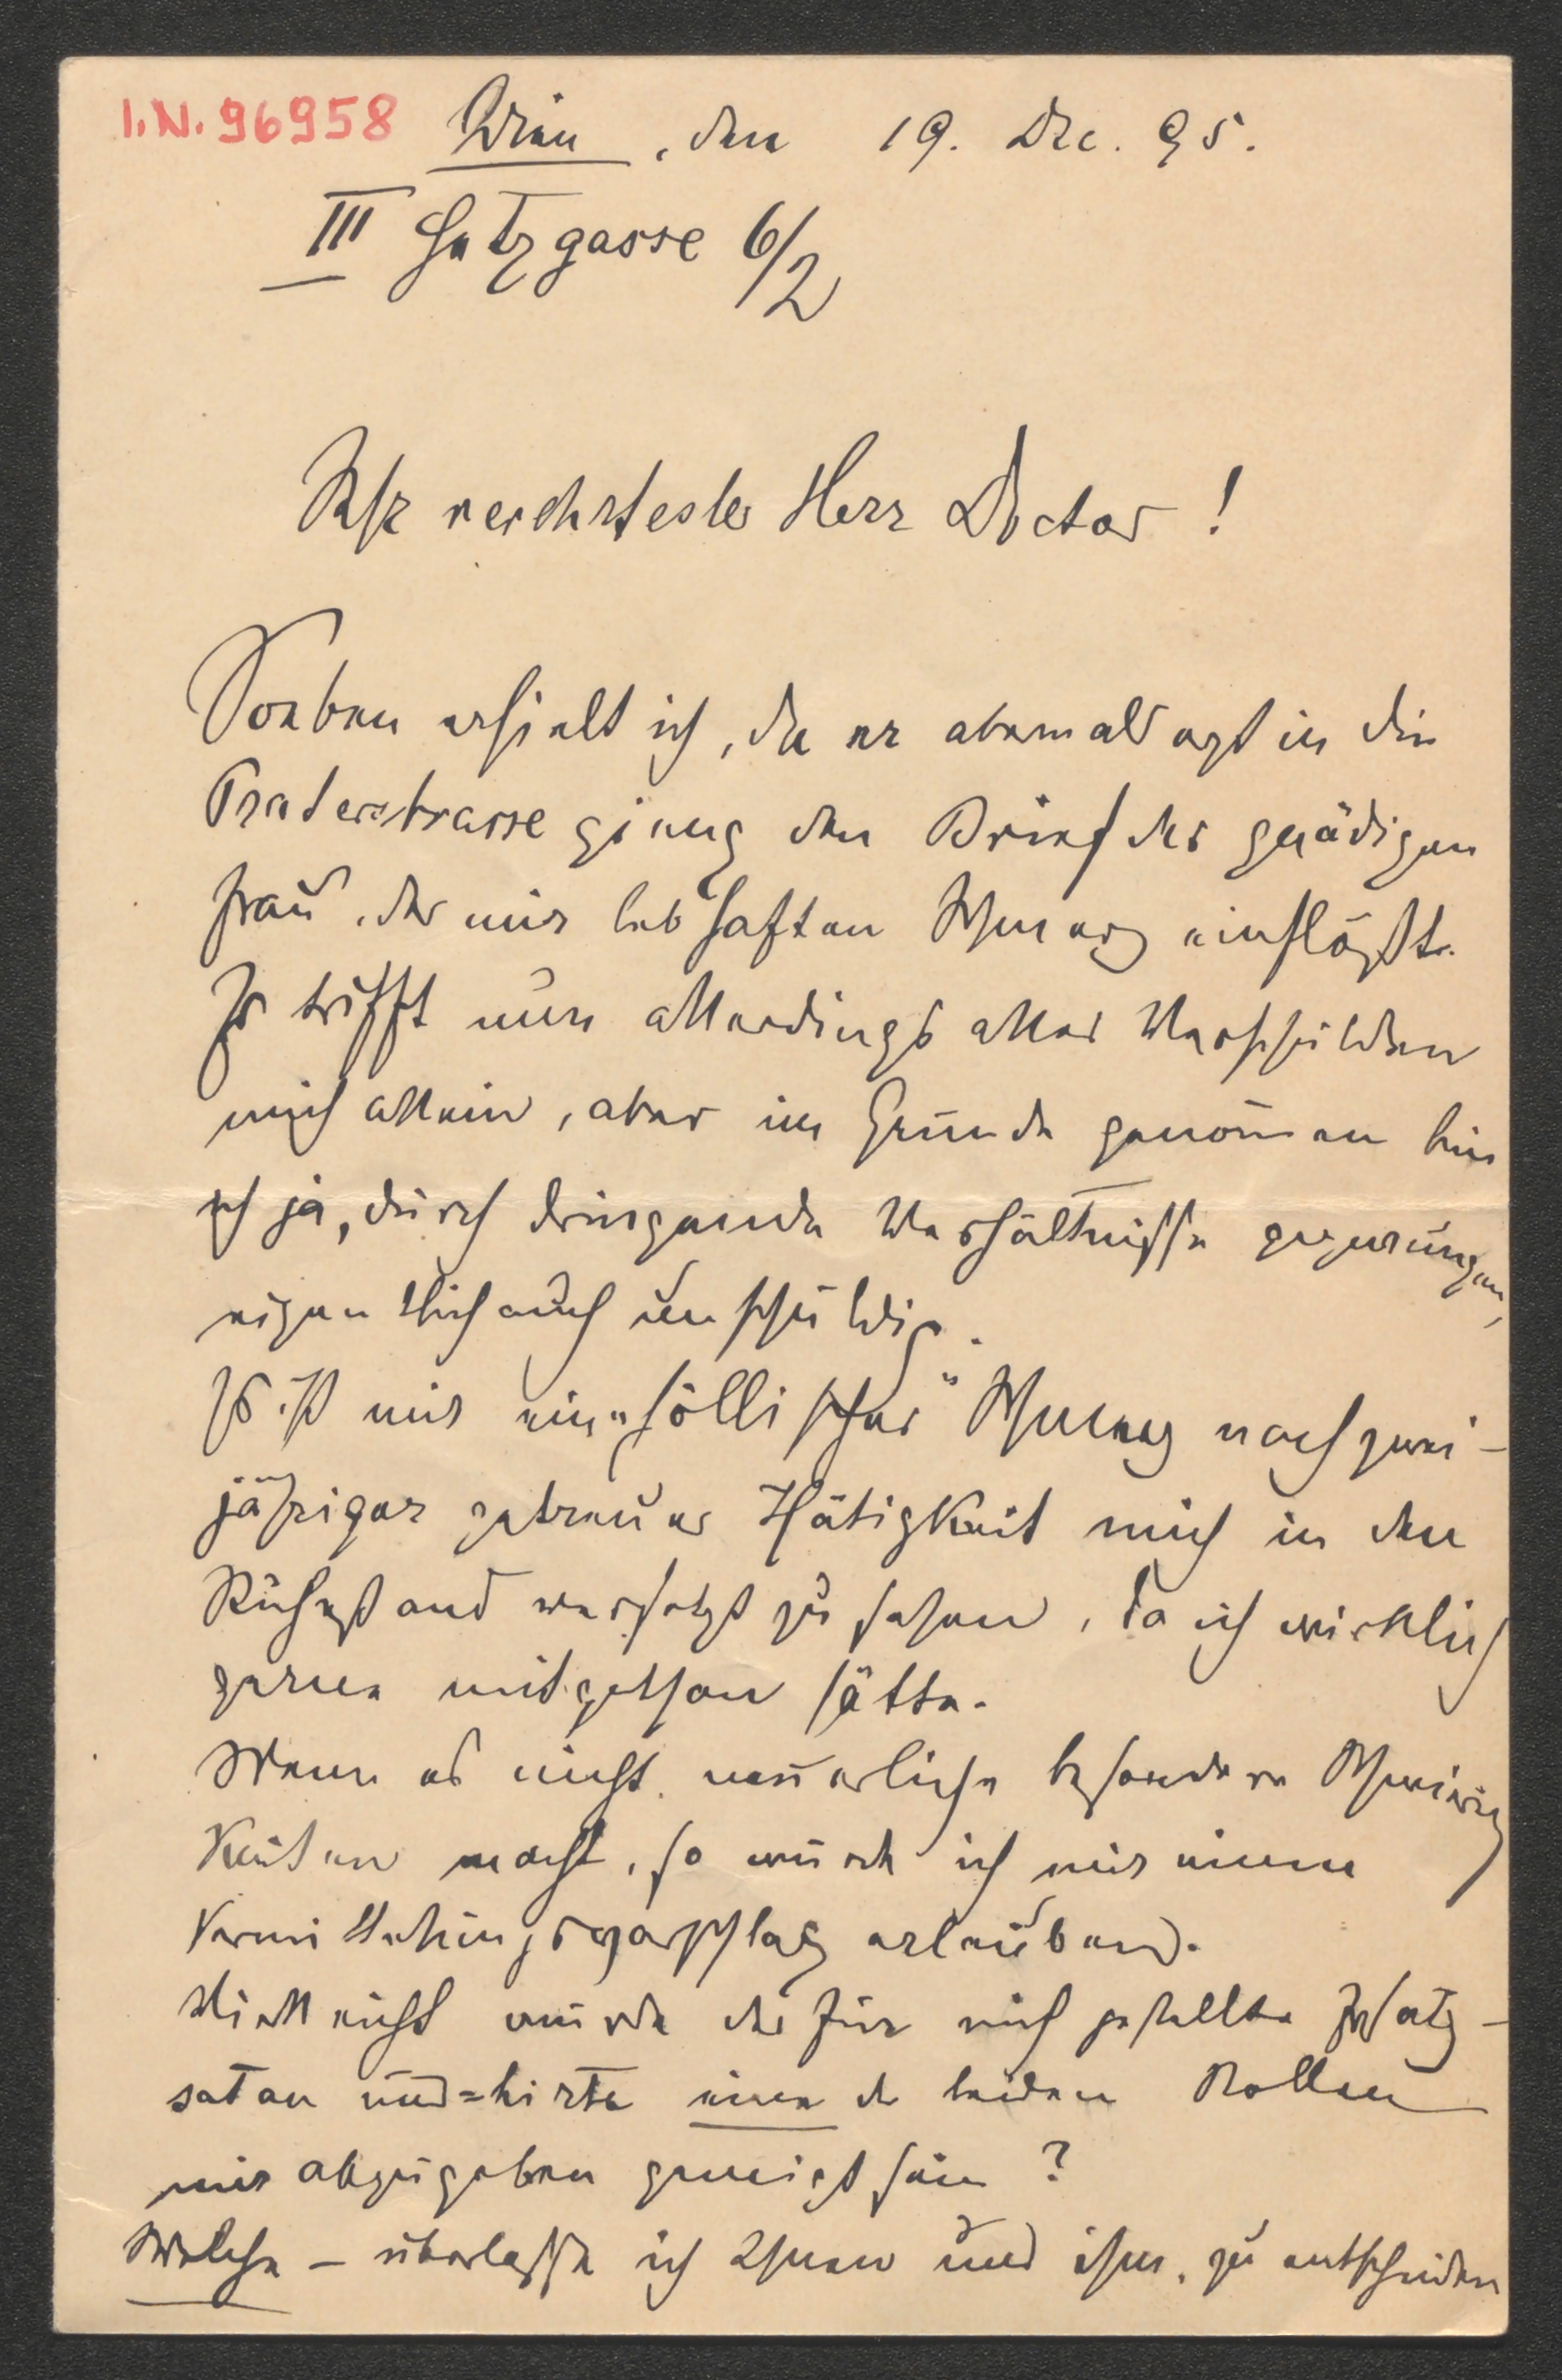 I.N. 96958 Wien, den 19. Dec. 95.
III Hetzgasse 6/2
Sehr verehrtester Herr Doctor!
Soeben erhielt ich, da er abermals erst in die
Praterstrasse gieng den Brief der gnädigen
Frau, der mir lebhaften Schmerz einflößte.
Es trifft nun allerdings alles Verschulden
mich allein, aber im Grunde genommen bin
ich ja, durch dringende Verhältnisse gezwungen,
eigentlich auch unschuldig.
Es ist mir ein „höllischer" Schmerz nach zwei-
jähriger getreuer Thätigkeit mich in den
Ruhestand versetzt zu sehen, da ich wirklich
gerne mitgethan hätte.
Wenn es nicht neuerliche besondere Schwierig
keiten macht, so würde ich mir einen
Vermittelungsvorschlag erlauben.
Vielleicht würde der für mich gestellte Ersatz-
satan und =hirte eine der beiden Rollen
mir abzugeben geneigt sein?
Welche – überlasse ich Ihnen und ihm, zu entscheiden